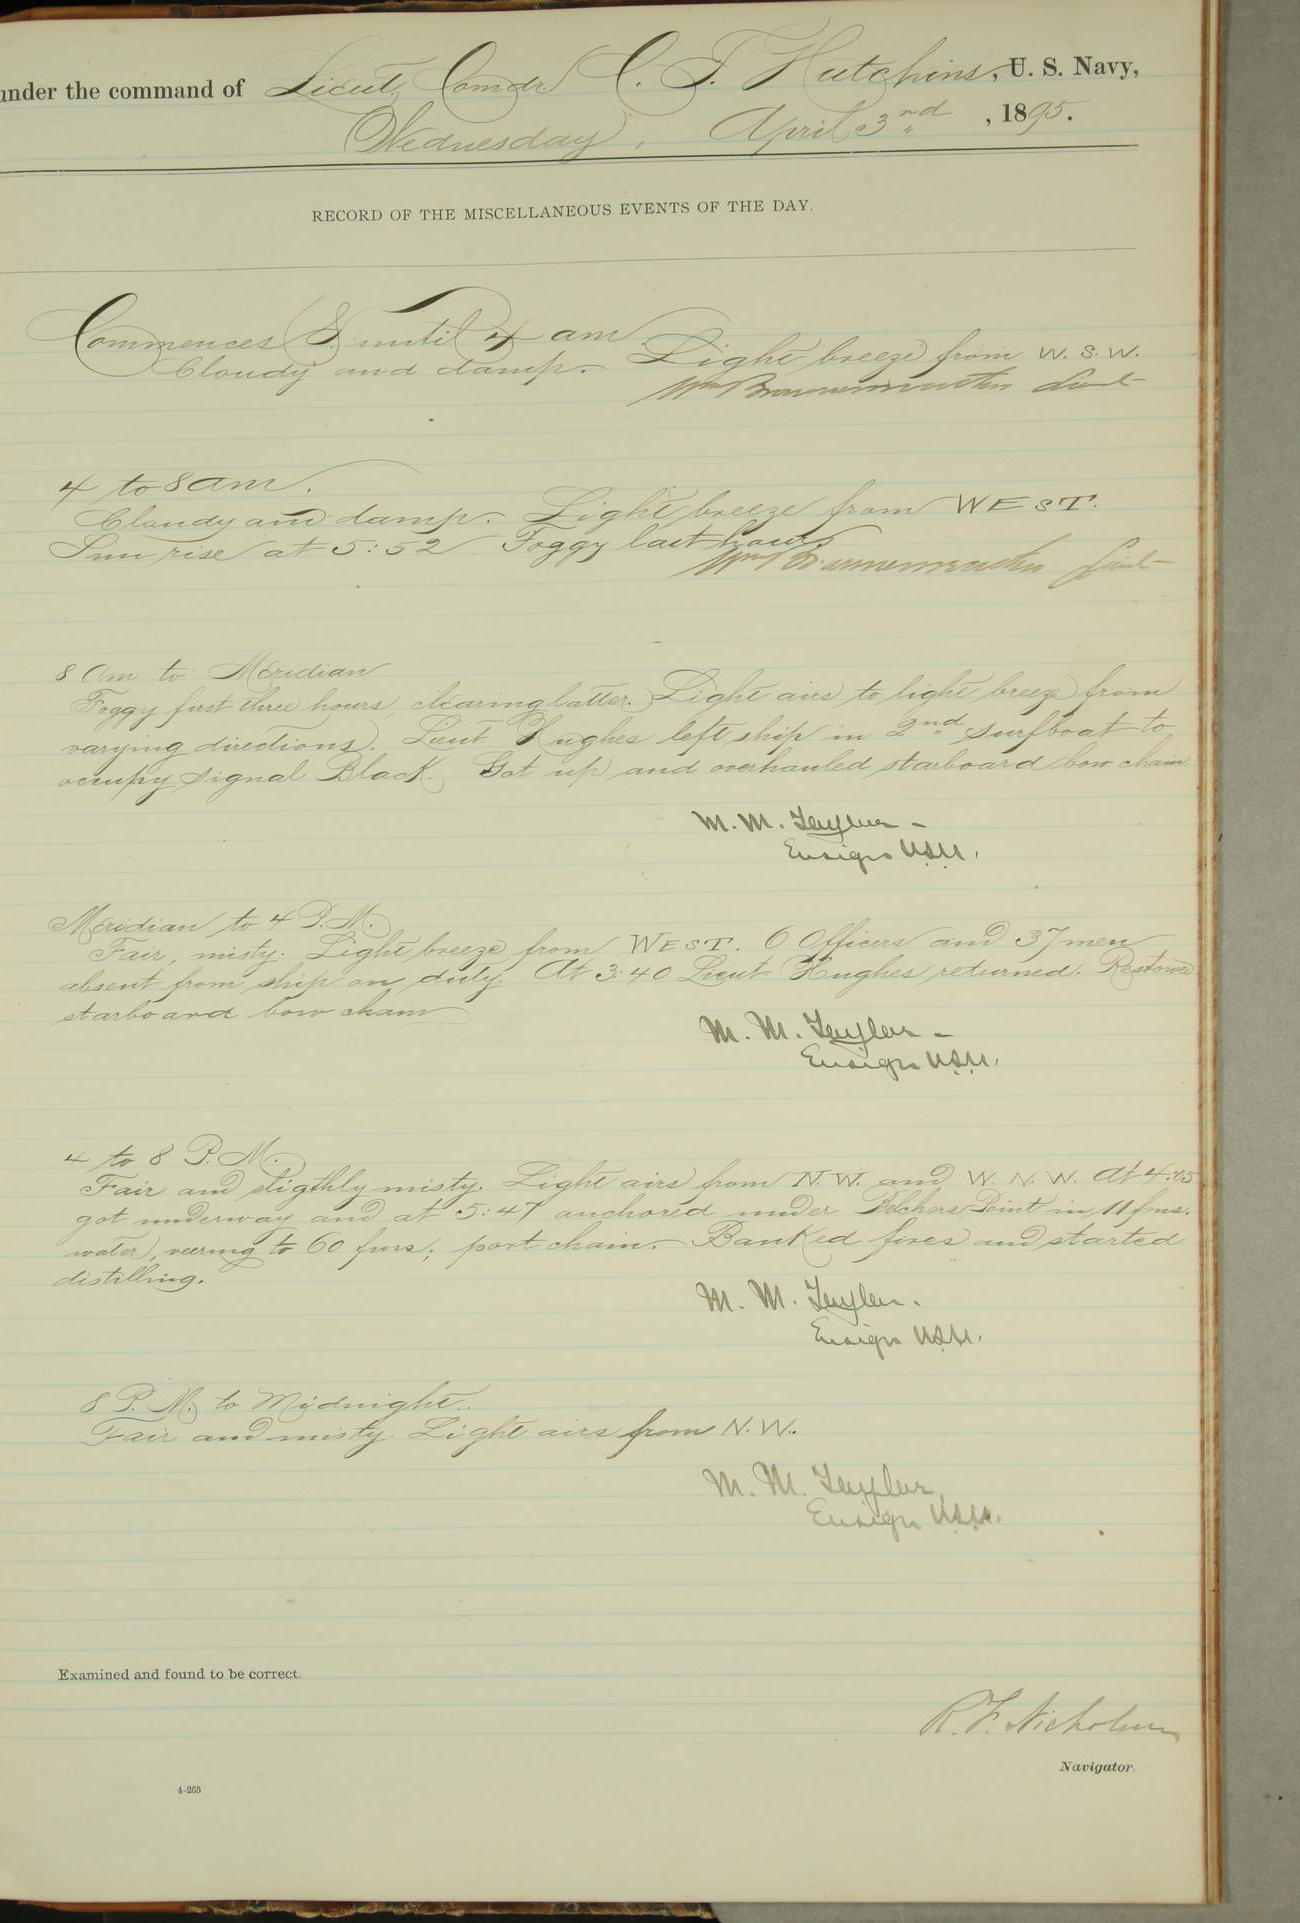 under the command of Lieut. Comdr. C. T. Hutchins, U. S. Navy,
Wednesday, April 3rd, 1895.
RECORD OF THE MISCELLANEOUS EVENTS OF THE DAY.
Commences & until 4 am
Cloudy and damp. Light breeze from W. S. W.
Wm Braunersreuther Lieut
4 to 8 am.
Cloudy and damp. Light breeze from WEST.
Sun rise at 5:52 Foggy last hours
Wm Braunersreuther Lieut
8 Am to Meridian
Foggy first three hours, clearing latter. Light airs to light breeze from
varying directions. Lieut. Hughes left ship in 2nd surfboat to
occupy signal Black. Got up and overhauled starboard bow chain
M. M. Taylor -
Ensign U.S.N.
Meridian to 4 P.M.
Fair, misty. Light breeze from WEST. 6 Officers and 37 men
absent from ship on duty. At 3:40 Lieut. Hughes returned. Restowed
starboard bow chain
M. M. Taylor -
Ensign U.S.N.
4 to 8 P.M.
Fair and sligthly misty. Light airs from N.W. and W. N. W. At 4:25
got underway and at 5:47 anchored under Belchers Point in 11 fms.
water, veering to 60 fms; port chain. Banked fires and started
distilling.
M. M. Taylor.
Ensign U.S.N.
8 P. M. to Midnight.
Fair and misty. Light airs from N.W.
M. M. Taylor,
Ensign U.S.N.
Examined and found to be correct.
R. F. Nicholson
Navigator.
4-265